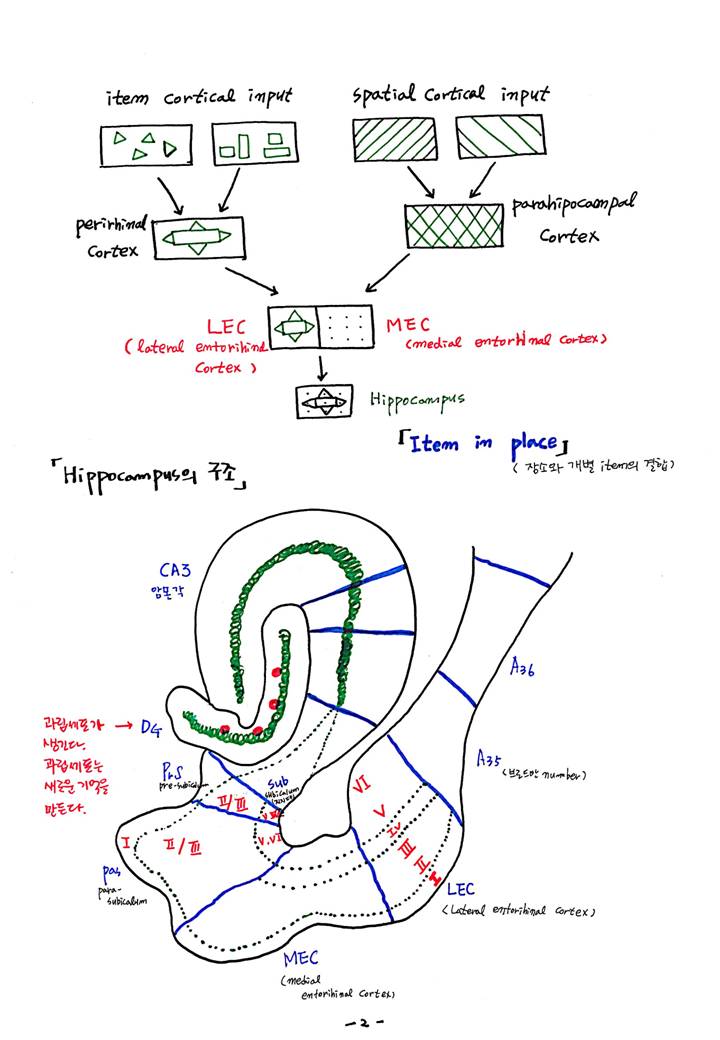 item cortical input
spatial cortical input
perirhinal
cortex
parahipocampal
cortex
LEC
(lateral entorihinal
cortex)
MEC
(medial entorhinal cortex)
Hippocampus
「Item in place」
(장소와 개별 item의 결합)
「Hippocampus의 구조」
CA3
암몬각
A36
과립세포가 → DG
생긴다.
과립세포는
새로운 기억을
만든다.
A35
(브로드만 number)
PrS
pre-subicalum
Sub
subicalum
II/III
V, VI
I
II/III
VI
V
IV
III
II
I
pas
para-
subicalum
LEC
(Lateral entorihinal cortex)
MEC
(medial
entorihinal cortex)
- 2 -